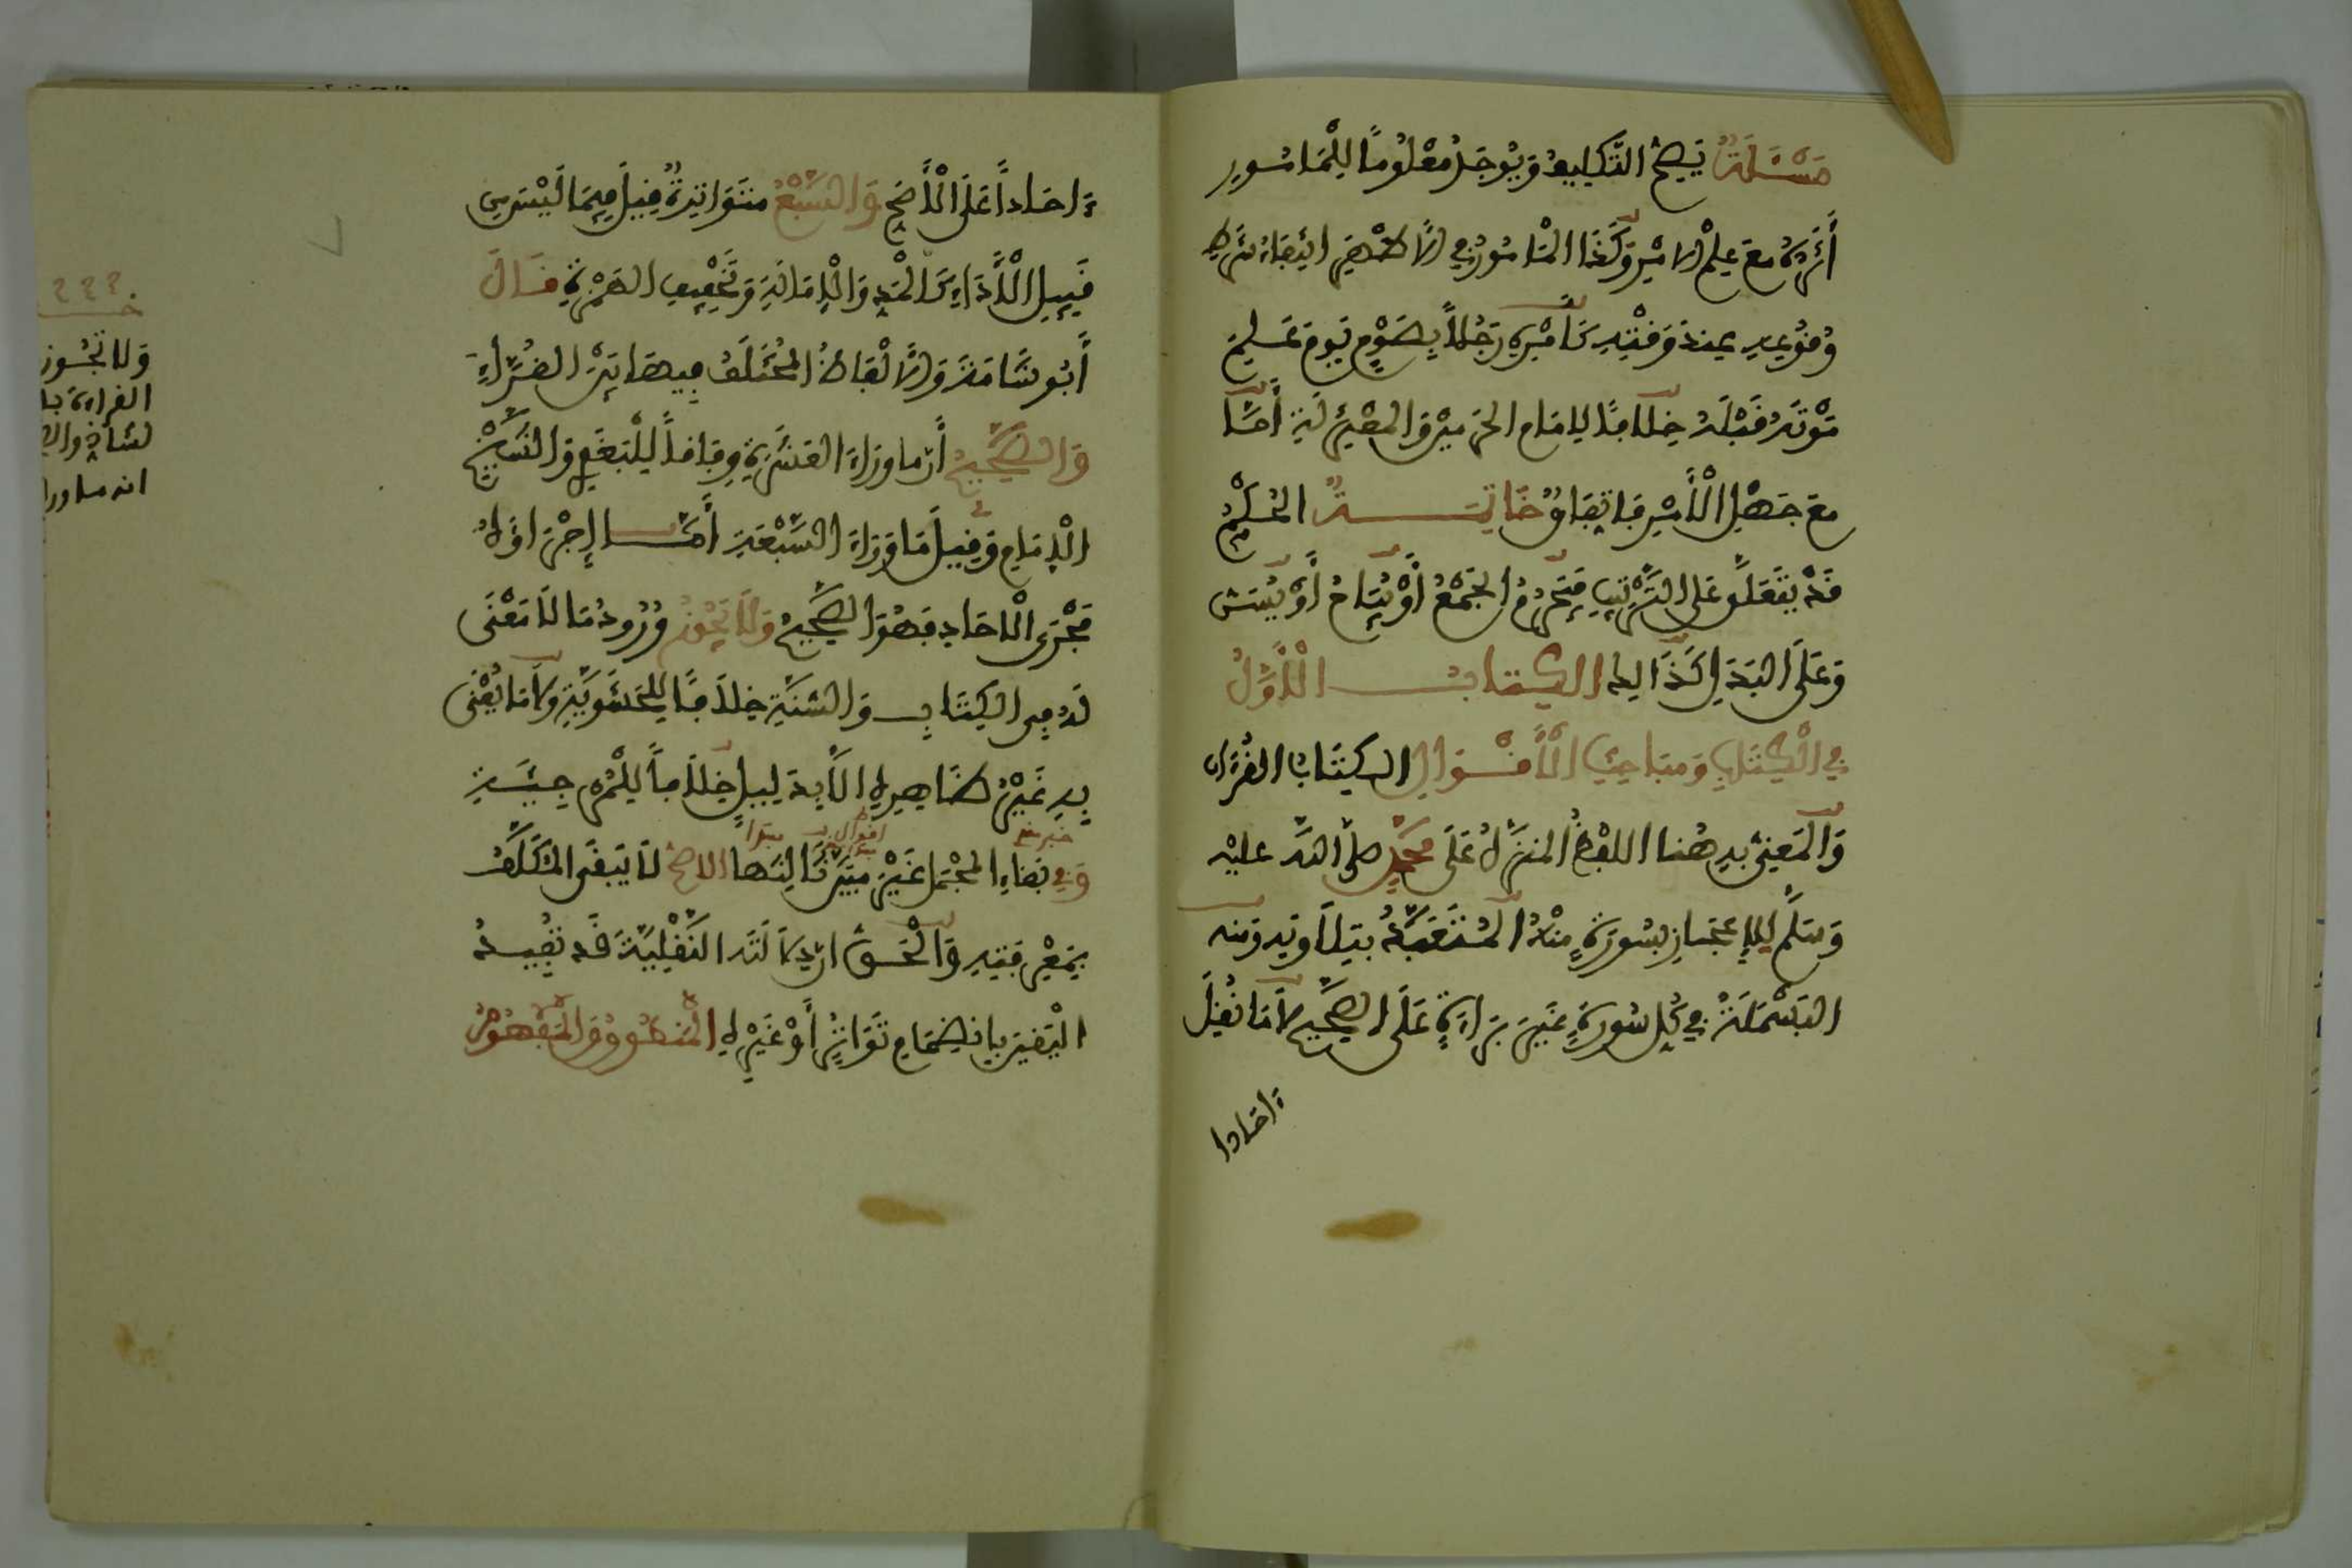 مَسْئَلَةٌ يَصِحُّ التَّكْلِيفُ وَيُوجَدُ مَعْلُومًا لِلْمَامُورِ
أَثَرَهُ مَعَ عِلْمِ الآمِرِ وَكَذَا الْمَامُورُ فِي الأَظْهَرِ انْتِفَاءَ شَرْطِ
وُقُوعِهِ عِنْدَ وَقْتِهِ كَأَمْرِهِ رَجُلاً بِصَوْمِ يَوْمٍ عَلِمَ
مَوْتَهُ قَبْلَهُ خِلَافًا لِإِمَامِ الْحَرَمَيْنِ وَالْمُعْتَزِلَةِ أَمَّا
مَعَ جَهْلِ الْأَمِرِ فَاتِّفَاقٌ خَاتِمَةٌ الْحُكْمُ
قَدْ يَتَعَلَّقُ عَلَى التَّرْتِيبِ فَيَحْرُمُ الْجَمْعُ أَوْ يُبَاحُ أَوْ يُسَنُّ
وَعَلَى الْبَدَلِ كَذَالِكَ الْكِتَابُ الْأَوَّلُ
فِي الْكِتَابِ وَمَبَاحِثِ الْأَقْوَالِ الْكِتَابُ الْقُرْءَانُ
وَالْمَعْنِيُّ بِهِ هُنَا اللَّفْظُ الْمُنَزَّلُ عَلَى مُحَمَّدٍ صَلَّى اللَّهُ عَلَيْهِ
وَسَلَّمَ لِلْإِعْجَازِ بِسُورَةٍ مِنْهُ الْمُتَعَبَّدُ بِتِلَاوَتِهِ وَمِنْهُ
الْبَسْمَلَةُ فِي كُلِّ سُورَةٍ غَيْرَ بَرَاءَةٍ عَلَى الصَّحِيحِ لَا مَا نُقِلَ
ءَاحَادا
ءَاحَاداً عَلَى الْأَصَحِّ وَالسَّبْعُ مُتَوَاتِرَةٌ قِيلَ فِيمَا لَيْسَ مِن
قَبِيلِ الْأَدَاءِ كَالْمَدِّ وَالْإِمَالَةِ وَتَخْفِيفِ الْهَمْزَةِ قَالَ
أَبُو شَامَةَ وَالْأَلْفَاظُ الْمُخْتَلَفُ فِيهَا بَيْنَ الْقُرَّاءِ
وَالصَّحِيحُ أَنَّ مَا وَرَاءَ الْعَشَرَةِ وِفَاقاً لِلْبَغَوِي وَالشَّيْخِ
الْإِمَامِ وَقِيلَ مَا وَرَاءَ السَّبْعَةِ أَمَّا إِجْرَاؤُهُ
مَجْرَى الْآحَادِ فَهُوَ الصَّحِيحُ وَلَا يَجُوزُ وُرُودُ مَا لَا مَعْنَى
لَهُ فِي الْكِتَابِ وَالسُّنَّةِ خِلَافًا لِلْحَشَوِيَّةِ وَلَا مَا يُعْنَى
بِهِ غَيْرُ ظَاهِرِهِ إِلَّا بِدَلِيلٍ خِلَافاً لِلْمُرْجِئَةِ
خبر مقدم اقوال مبتدأ
وَفِي بَقَاءِ الْمُجْمَلِ غَيْرَ مُبَيَّنٍ ثَالِثُهَا الْأَصَحُّ لَا يَبْقَى الْمُكَلَّفُ
بِمَعْرِفَتِهِ وَالْحَقُّ أَنَّ الأَدِلَّةَ النَّقْلِيَّةَ قَدْ تُفِيدُ
الْيَقِينَ بِانْضِمَامِ تَوَاتُرٍ أَوْ غَيْرِهِ الْمَنْطُوقُ وَالْمَفْهُومُ
وَلَا تَجُوز
القراءة با
لشاذ وال
انه ما ورا